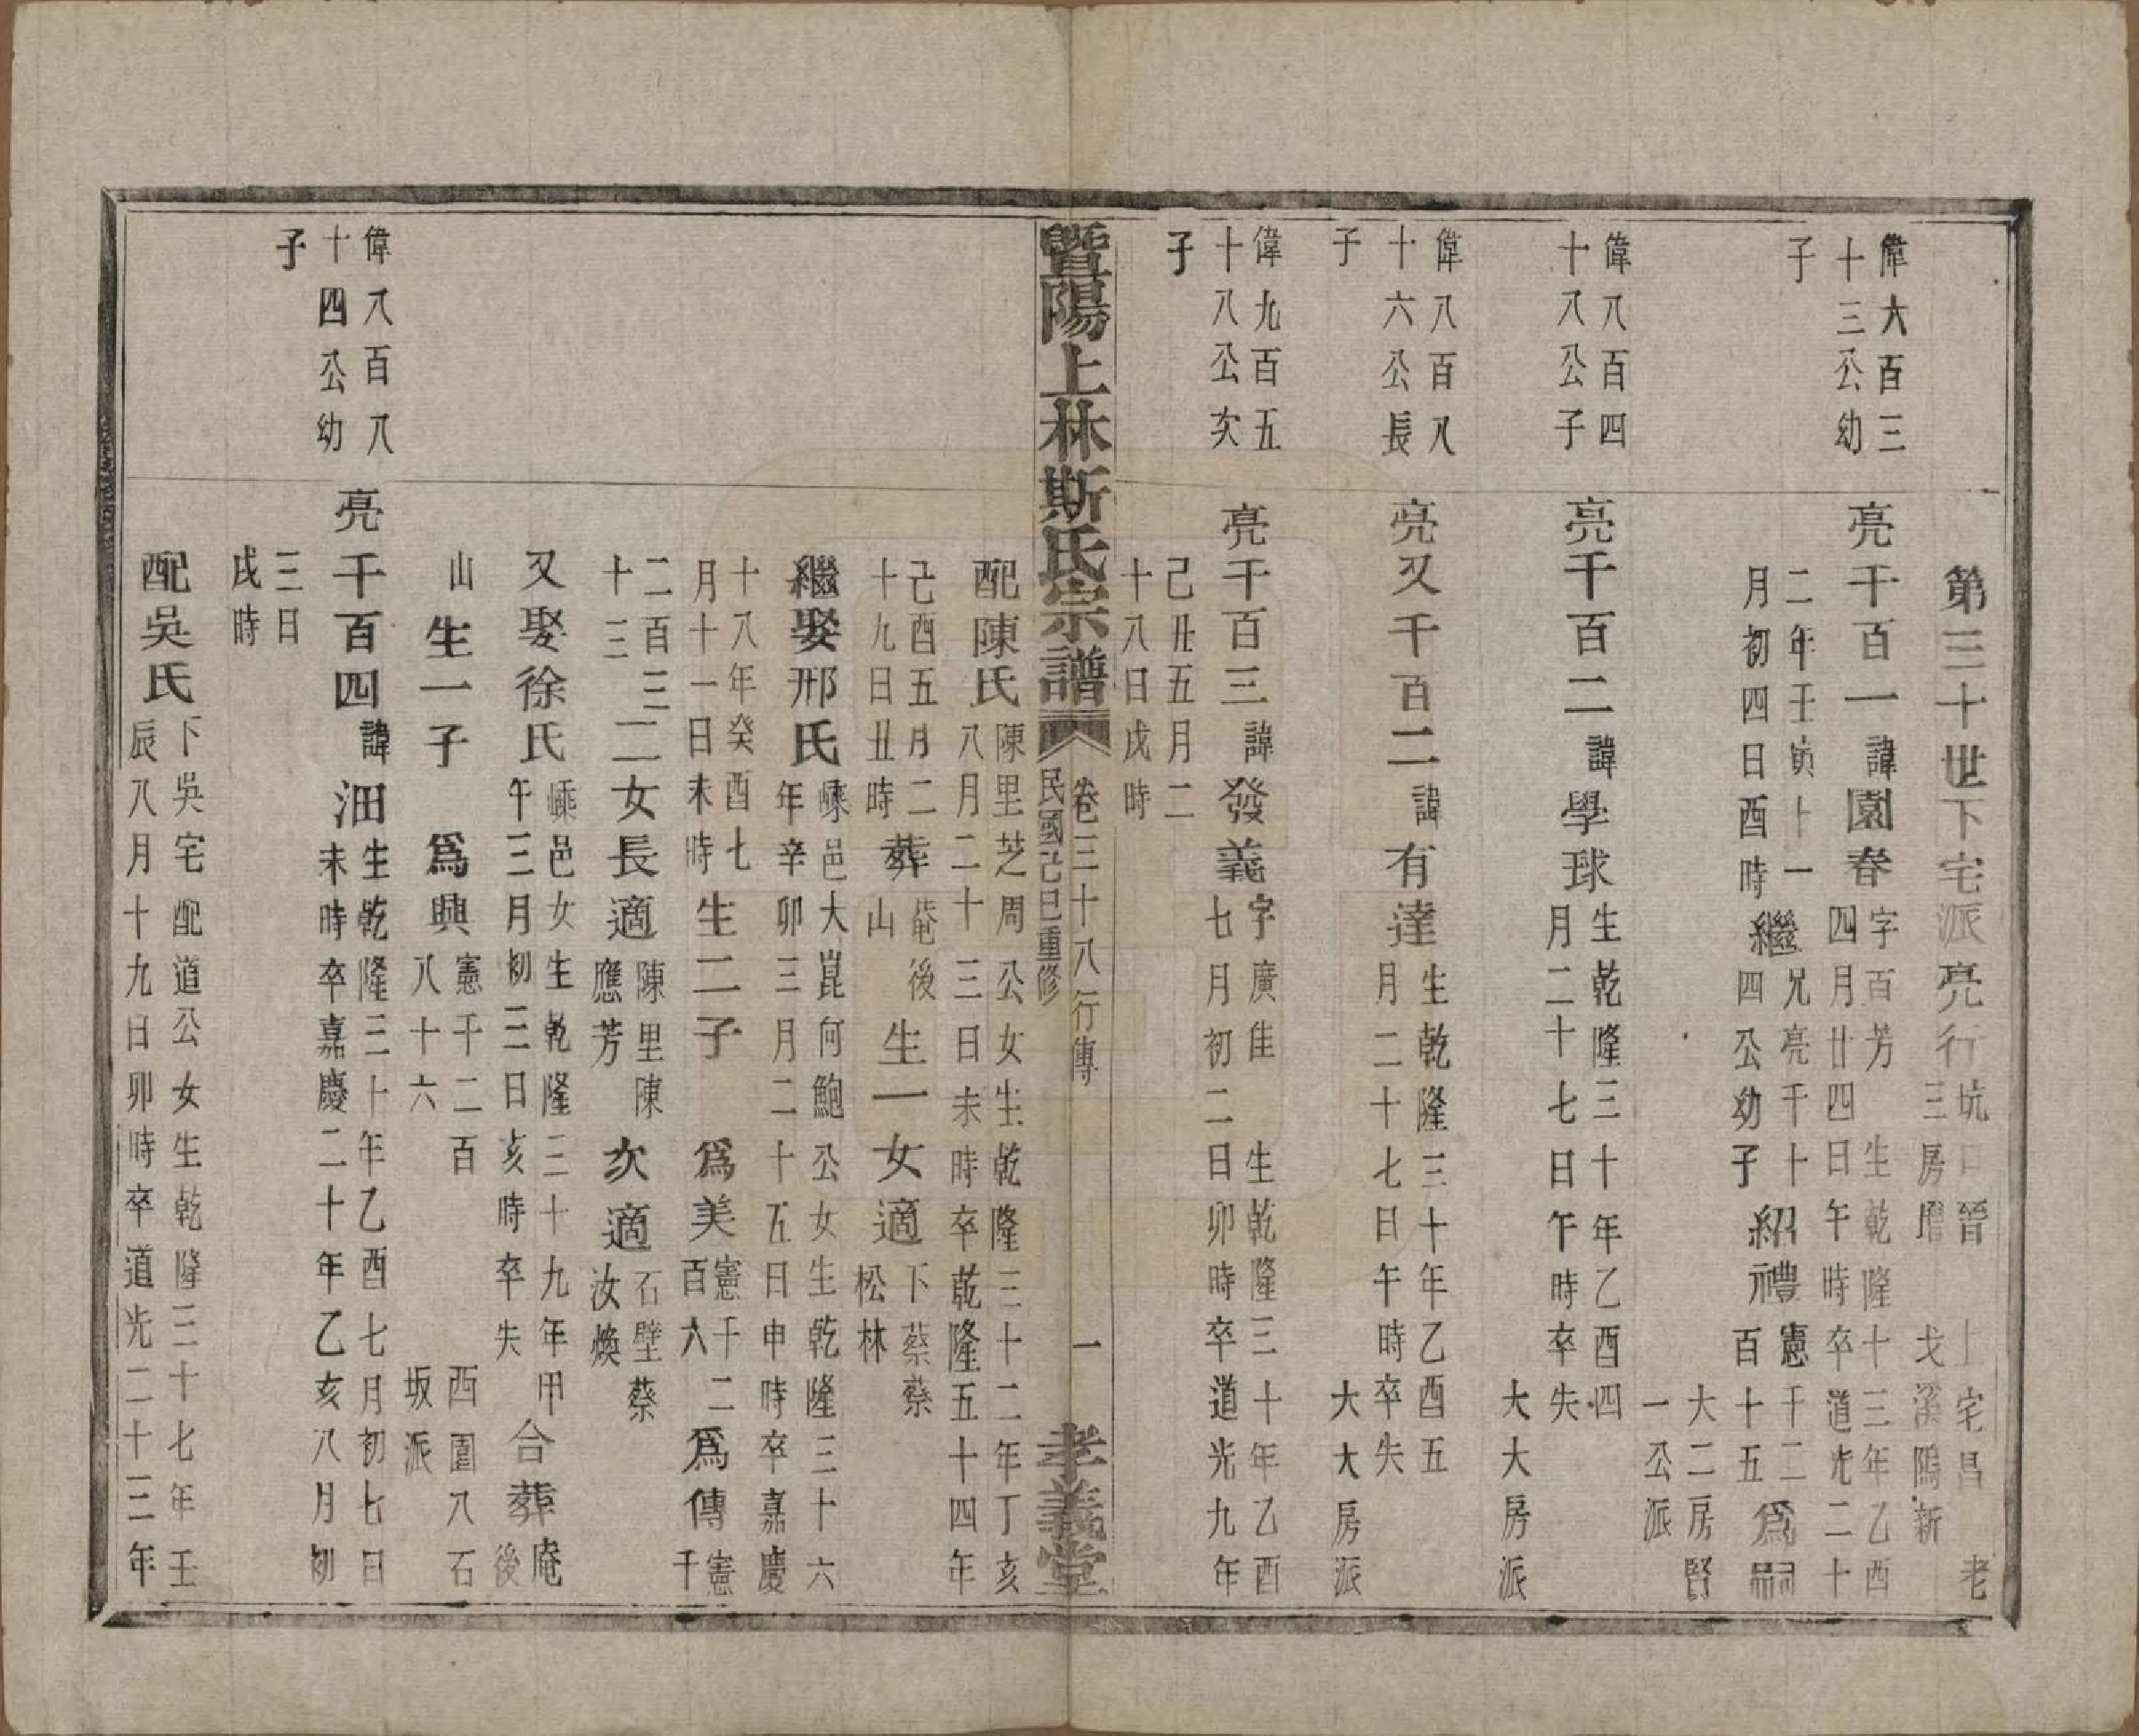 第三十世下宅派亮行
坑口晉 上宅昌 老
三房增 戈溪隖新
偉六百三
十三公幼
子
亮千百一諱園春
字百芳 生乾隆十三年乙酉
四月廿四日午時卒道光二十
二年壬寅十一
月初四日酉時
繼
兄亮千十
四公幼子
紹禮
憲千二
百十五
爲嗣
大二房賢
一公派
偉八百四
十八公子
亮千百二諱學球
生乾隆三十年乙酉四
月二十七日午時卒失
大大房派
偉八百八
十六公長
子
亮又千百二諱有達
生乾隆三十年乙酉五
月二十七日午時卒失
大大房派
偉九百五
十八公次
子
亮千百三諱發義
字廣佳 生乾隆三十年乙酉
七月初二日卯時卒道光九年
己丑五月二
十八日戌時
暨陽上林斯氏宗譜
民國己巳重修
卷三十八行傳
一
孝義堂
配陳氏
陳里芝周公女生乾隆三十二年丁亥
八月二十三日未時卒乾隆五十四年
己酉五月二
十九日丑時
葬
菴後
山
生一女適
下蔡蔡
松林
繼娶邢氏
嵊邑大崑何鮑公女生乾隆三十六
年辛卯三月二十五日申時卒嘉慶
十八年癸酉七
月十一日未時
生二子
爲美
憲千二
百六
爲傳
憲
千
二百三
十三
二女長適
陳里陳
應芳
次適
石壁蔡
汝煥
又娶徐氏
嵊邑女生乾隆三十九年甲
午三月初三日亥時卒失
合葬
庵
後
山
生一子
爲興
憲千二百
八十六
西園八石
坂派
偉八百八
十四公幼
子
亮千百四諱沺
生乾隆三十年乙酉七月初七日
未時卒嘉慶二十年乙亥八月初
三日
戌時
配吳氏
下吳宅配道公女生乾隆三十七年壬
辰八月十九日卯時卒道光二十三年